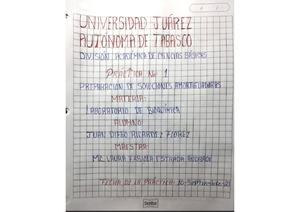 UNIVERSIDAD JUÁREZ
AUTÓNOMA DE TABASCO
DIVISIÓN ACADÉMICA DE CIENCIAS BÁSICAS
PRÁCTICA No 1
PREPARACIÓN DE SOLUCIONES AMORTIGUADORAS
MATERIA:
LABORATORIO DE BIOQUÍMICA
ALUMNO:
JUAN DIEGO RICARDEZ FLOREZ
MAESTRA:
LAURA FABIOLA ESTRADA ANDRADE
FECHA DE LA PRÁCTICA: